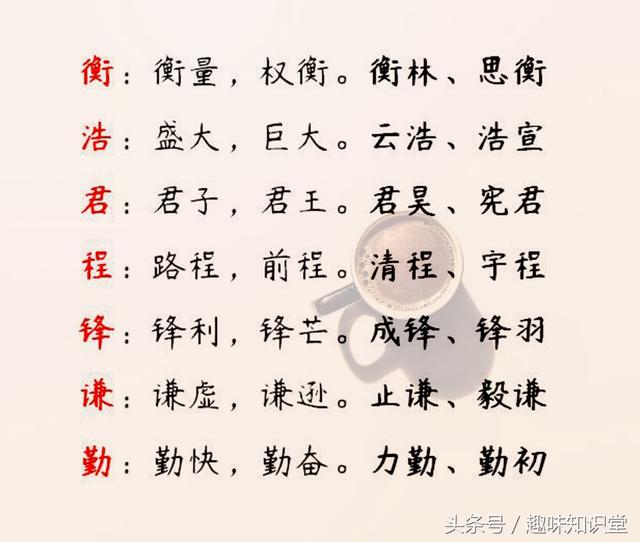 衡：衡量，权衡。衡林、思衡
浩：盛大，巨大。云浩、浩宣
君：君子，君王。君昊、宪君
程：路程，前程。清程、宇程
锋：锋利，锋芒。成锋、锋羽
谦：谦虚，谦逊。止谦、毅谦
勤：勤快，勤奋。力勤、勤初
头条号／趣味知识堂